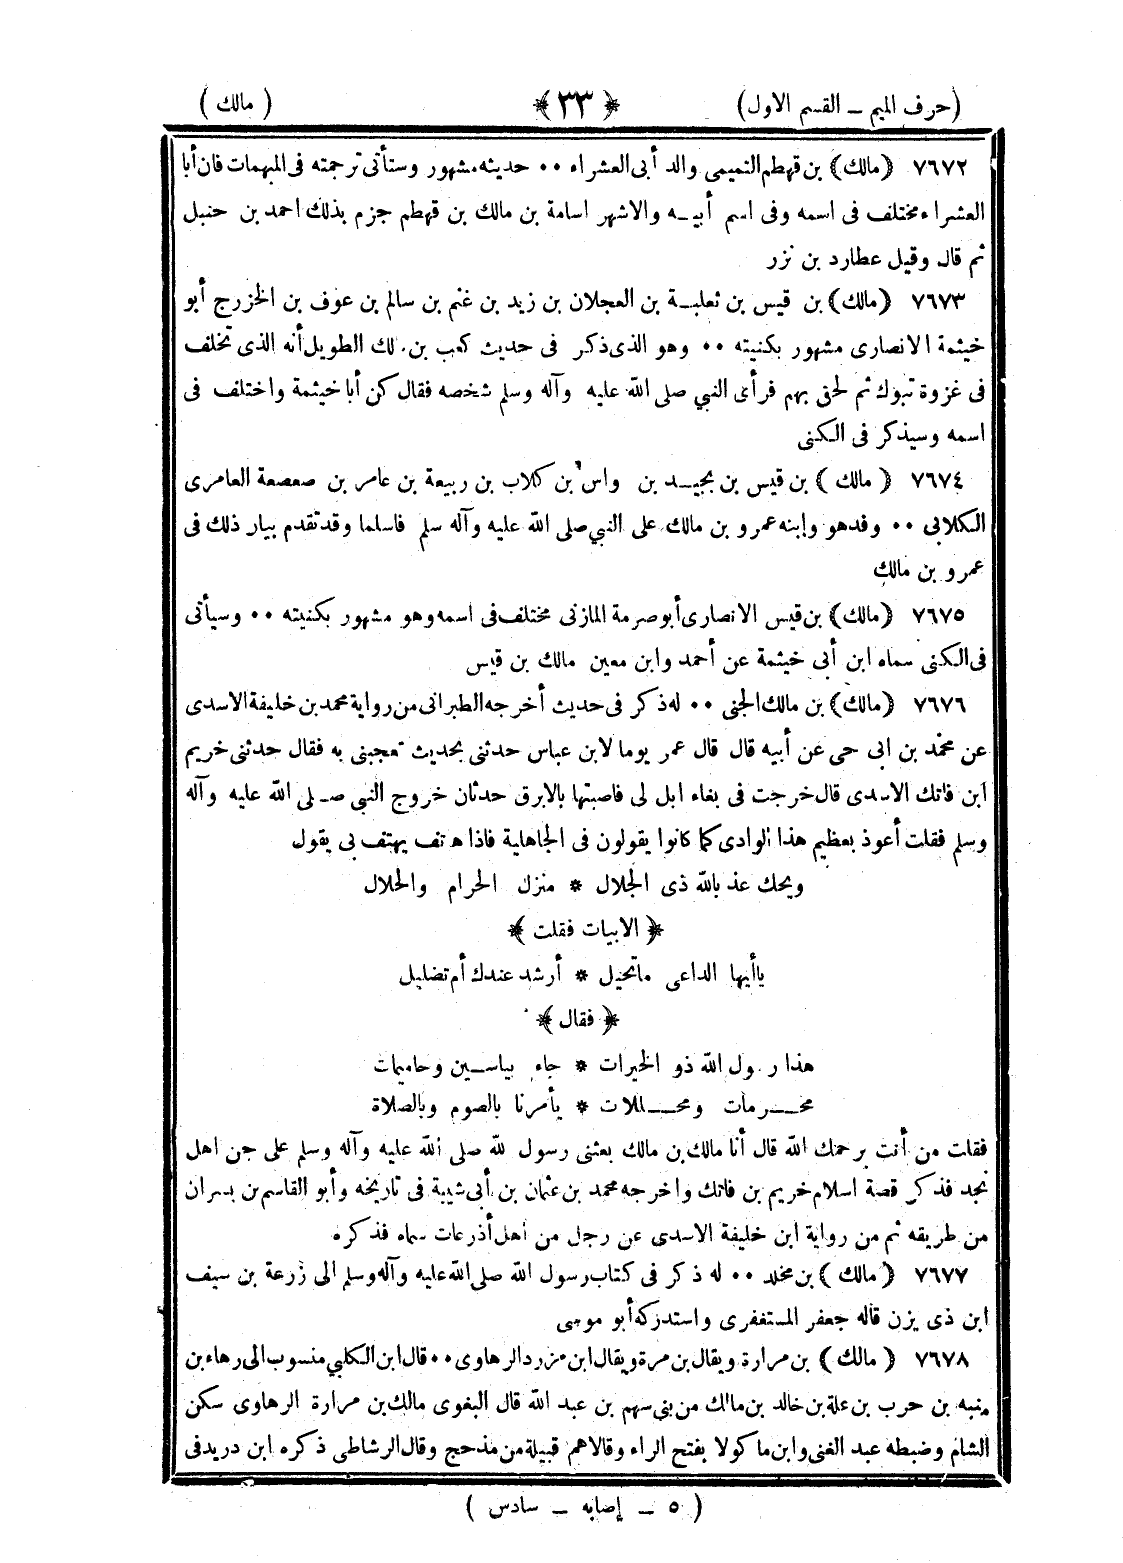 (حرف الميم ــ القسم الاول) ﴿ ٣٣ ﴾ ( مالك )
٧٦٧٢ ( مالك ) بن قهطم التميمى والد أبى العشراء ٠٠ حديثه مشهور وستأتى ترجمته فى المبهمات فان أبا
العشراء مختلف فى اسمه وفى اسم أبيه والاشهر اسامة بن مالك بن قهطم جزم بذلك احمد بن حنبل
ثم قال وقيل عطارد بن نزر
٧٦٧٣ (مالك) بن قيس بن ثعلبة بن العجلان بن زيد بن غنم بن سالم بن عوف بن الخزرج أبو
خيثمة الانصارى مشهور بكنيته ٠٠ وهو الذى ذكر فى حديث كعب بن .لك الطويل أنه الذى تخلف
فى غزوة تبوك ثم لحق بهم فرأى النبي صلى الله عليه وآله وسلم شخصه فقال كن أبا خيثمة واختلف فى
اسمه وسيذكر فى الكنى
٧٦٧٤ ( مالك ) بن قيس بن بجيد بن واس بن كلاب بن ربيعة بن عامر بن صعصعة العامرى
الكلابى ٠٠ وفد هو وابنه عمرو بن مالك على النبي صلى الله عليه وآله سلم فاسلما وقد تقدم بيار ذلك فى
عمرو بن مالك
٧٦٧٥ (مالك) بن قيس الانصارى أبو صرمة المازنى مختلف فى اسمه وهو مشهور بكنيته ٠٠ وسيأتى
فى الكنى سماه ابن أبى خيثمة عن أحمد وابن معين مالك بن قيس
٧٦٧٦ (مالك) بن مالك الجنى ٠٠ له ذكر فى حديث أخرجه الطبرانى من رواية محمد بن خليفة الاسدى
عن محمد بن ابى حى عن أبيه قال قال عمر يوما لابن عباس حدثنى بحديث تعجبنى به فقال حدثنى خريم
ابن فاتك الاسدى قال خرجت فى بغاء ابل لى فاصبتها بالابرق حدثان خروج النبي صلى الله عليه وآله
وسلم فقلت أعوذ بعظيم هذا الوادى كما كانوا يقولون فى الجاهلية فاذا هتف يهتف بى يقول
ويحك عذ بالله ذى الجلال * منزل الحرام والحلال
﴿ الابيات فقلت ﴾
ياأيها الداعى ماتحيل * أرشد عندك أم تضليل
﴿ فقال ﴾
هذا ر.ول الله ذو الخيرات * جاء بياسين وحاميمات
محرمات ومحللات * يأمرنا بالصوم وبالصلاة
فقلت من أنت يرحمك الله قال أنا مالك بن مالك بعثنى رسول لله صلى الله عليه وآله وسلم على جن اهل
نجد فذكر قصة اسلام خريم بن فاتك واخرجه محمد بن عثمان بن أبى شيبة فى تاريخه وأبو القاسم بن بسران
من طريقه ثم من رواية ابن خليفة الاسدى عن رجل من أهل أذرعات سماه فذكره
٧٦٧٧ ( مالك ) بن مخلد ٠٠ له ذكر فى كتاب رسول الله صلى الله عليه وآله وسلم الى زرعة بن سيف
ابن ذى يزن قاله جعفر المستغفرى واستدركه أبو موسى
٧٦٧٨ ( مالك ) بن مرارة ويقال بن مرة ويقال ابن مزرد الرهاوى ٠٠ قال ابن الكلبي منسوب الى رهاء بن
منبه بن حرب بن علة بن خالد بن مالك من بنى سهم بن عبد الله قال البغوى مالك بن مرارة الرهاوى سكن
الشام وضبطه عبد الغنى وابن ماكولا بفتح الراء وقالا هم قبيلة من مذحج وقال الرشاطى ذكره ابن دريد فى
( ٥ ــ إصابه ــ سادس )